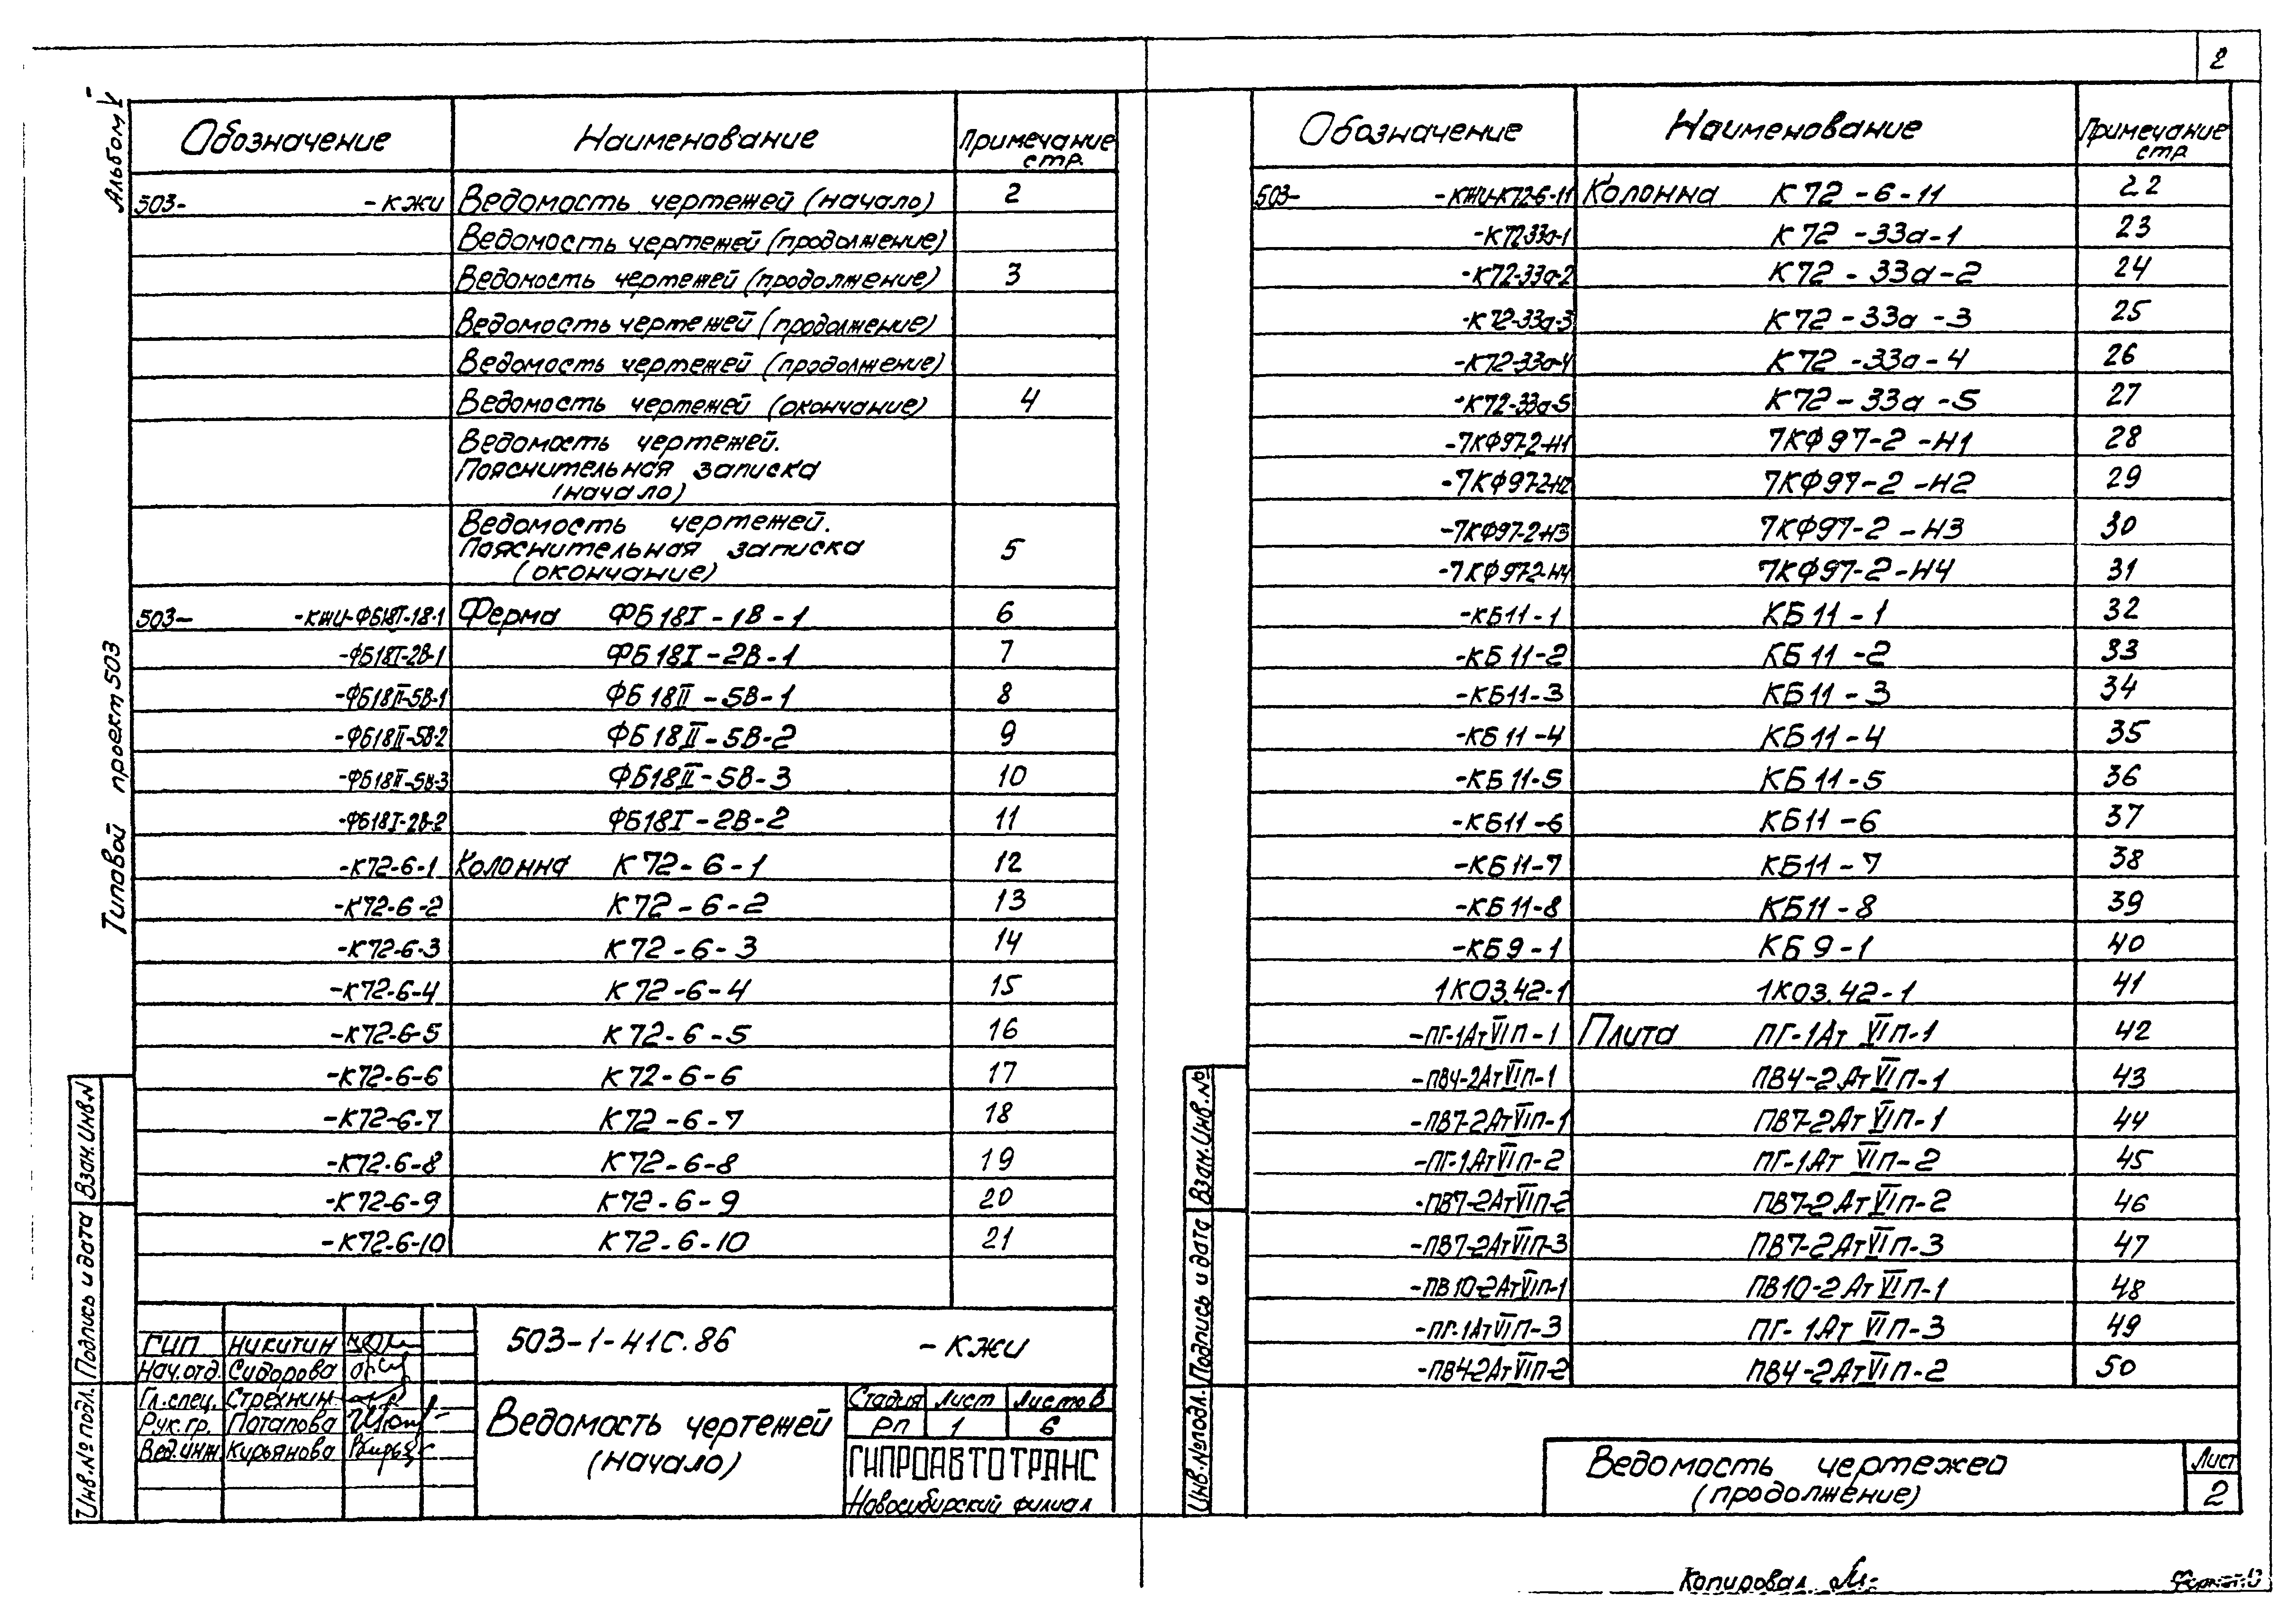 2
Альбом V
Типовой проект 503
Обозначение Наименование Примечание стр.
503- -КЖИ Ведомость чертежей (начало) 2
Ведомость чертежей (продолжение)
Ведомость чертежей (продолжение) 3
Ведомость чертежей (продолжение)
Ведомость чертежей (продолжение)
Ведомость чертежей (окончание) 4
Ведомость чертежей.
Пояснительная записка
(начало)
Ведомость чертежей.
Пояснительная записка 5
(окончание)
503- -КЖИ-ФБ18I-1В-1 Ферма ФБ18I-1В-1 6
-ФБ18I-2В-1 ФБ18I-2В-1 7
-ФБ18II-5В-1 ФБ18II-5В-1 8
-ФБ18II-5В-2 ФБ18II-5В-2 9
-ФБ18II-5В-3 ФБ18II-5В-3 10
-ФБ18I-2В-2 ФБ18I-2В-2 11
-К72-6-1 Колонна К72-6-1 12
-К72-6-2 К72-6-2 13
-К72-6-3 К72-6-3 14
-К72-6-4 К72-6-4 15
-К72-6-5 К72-6-5 16
-К72-6-6 К72-6-6 17
-К72-6-7 К72-6-7 18
-К72-6-8 К72-6-8 19
-К72-6-9 К72-6-9 20
-К72-6-10 К72-6-10 21
Инв.№ подл. Подпись и дата Взам.Инв.N
ГИП Никитин
Нач.отд. Сидорова
Гл.спец. Стрехнин
Рук.гр. Потапова
Вед.инж Кирьянова
503-1-41С.86 -КЖИ
Ведомость чертежей
(начало)
Стадия Лист Листов
РП 1 6
ГИПРОАВТОТРАНС
Новосибирский филиал
Обозначение Наименование Примечание стр
503- -КЖИ-К72-6-11 Колонна К72-6-11 22
-К72-33а-1 К72-33а-1 23
-К72-33а-2 К72-33а-2 24
-К72-33а-3 К72-33а-3 25
-К72-33а-4 К72-33а-4 26
-К72-33а-5 К72-33а-5 27
-7КФ97-2-Н1 7КФ97-2-Н1 28
-7КФ97-2-Н2 7КФ97-2-Н2 29
-7КФ97-2-Н3 7КФ97-2-Н3 30
-7КФ97-2-Н4 7КФ97-2-Н4 31
-КБ11-1 КБ11-1 32
-КБ11-2 КБ11-2 33
-КБ11-3 КБ11-3 34
-КБ11-4 КБ11-4 35
-КБ11-5 КБ11-5 36
-КБ11-6 КБ11-6 37
-КБ11-7 КБ11-7 38
-КБ11-8 КБ11-8 39
-КБ9-1 КБ9-1 40
1КО3.42-1 1КО3.42-1 41
-ПГ-1АтVIП-1 Плита ПГ-1АтVIП-1 42
-ПВ4-2АтVIП-1 ПВ4-2АтVIП-1 43
-ПВ7-2АтVIП-1 ПВ7-2АтVIП-1 44
-ПГ-1АтVIП-2 ПГ-1АтVIП-2 45
-ПВ7-2АтVIП-2 ПВ7-2АтVIП-2 46
-ПВ7-2АтVIП-3 ПВ7-2АтVIП-3 47
-ПВ10-2АтVIП-1 ПВ10-2АтVIП-1 48
-ПГ-1АтVIП-3 ПГ-1АтVIП-3 49
-ПВ4-2АтVIП-2 ПВ4-2АтVIП-2 50
Инв.№ подл. Подпись и дата Взам.Инв.№
Ведомость чертежей
(продолжение)
Лист
2
Копировал